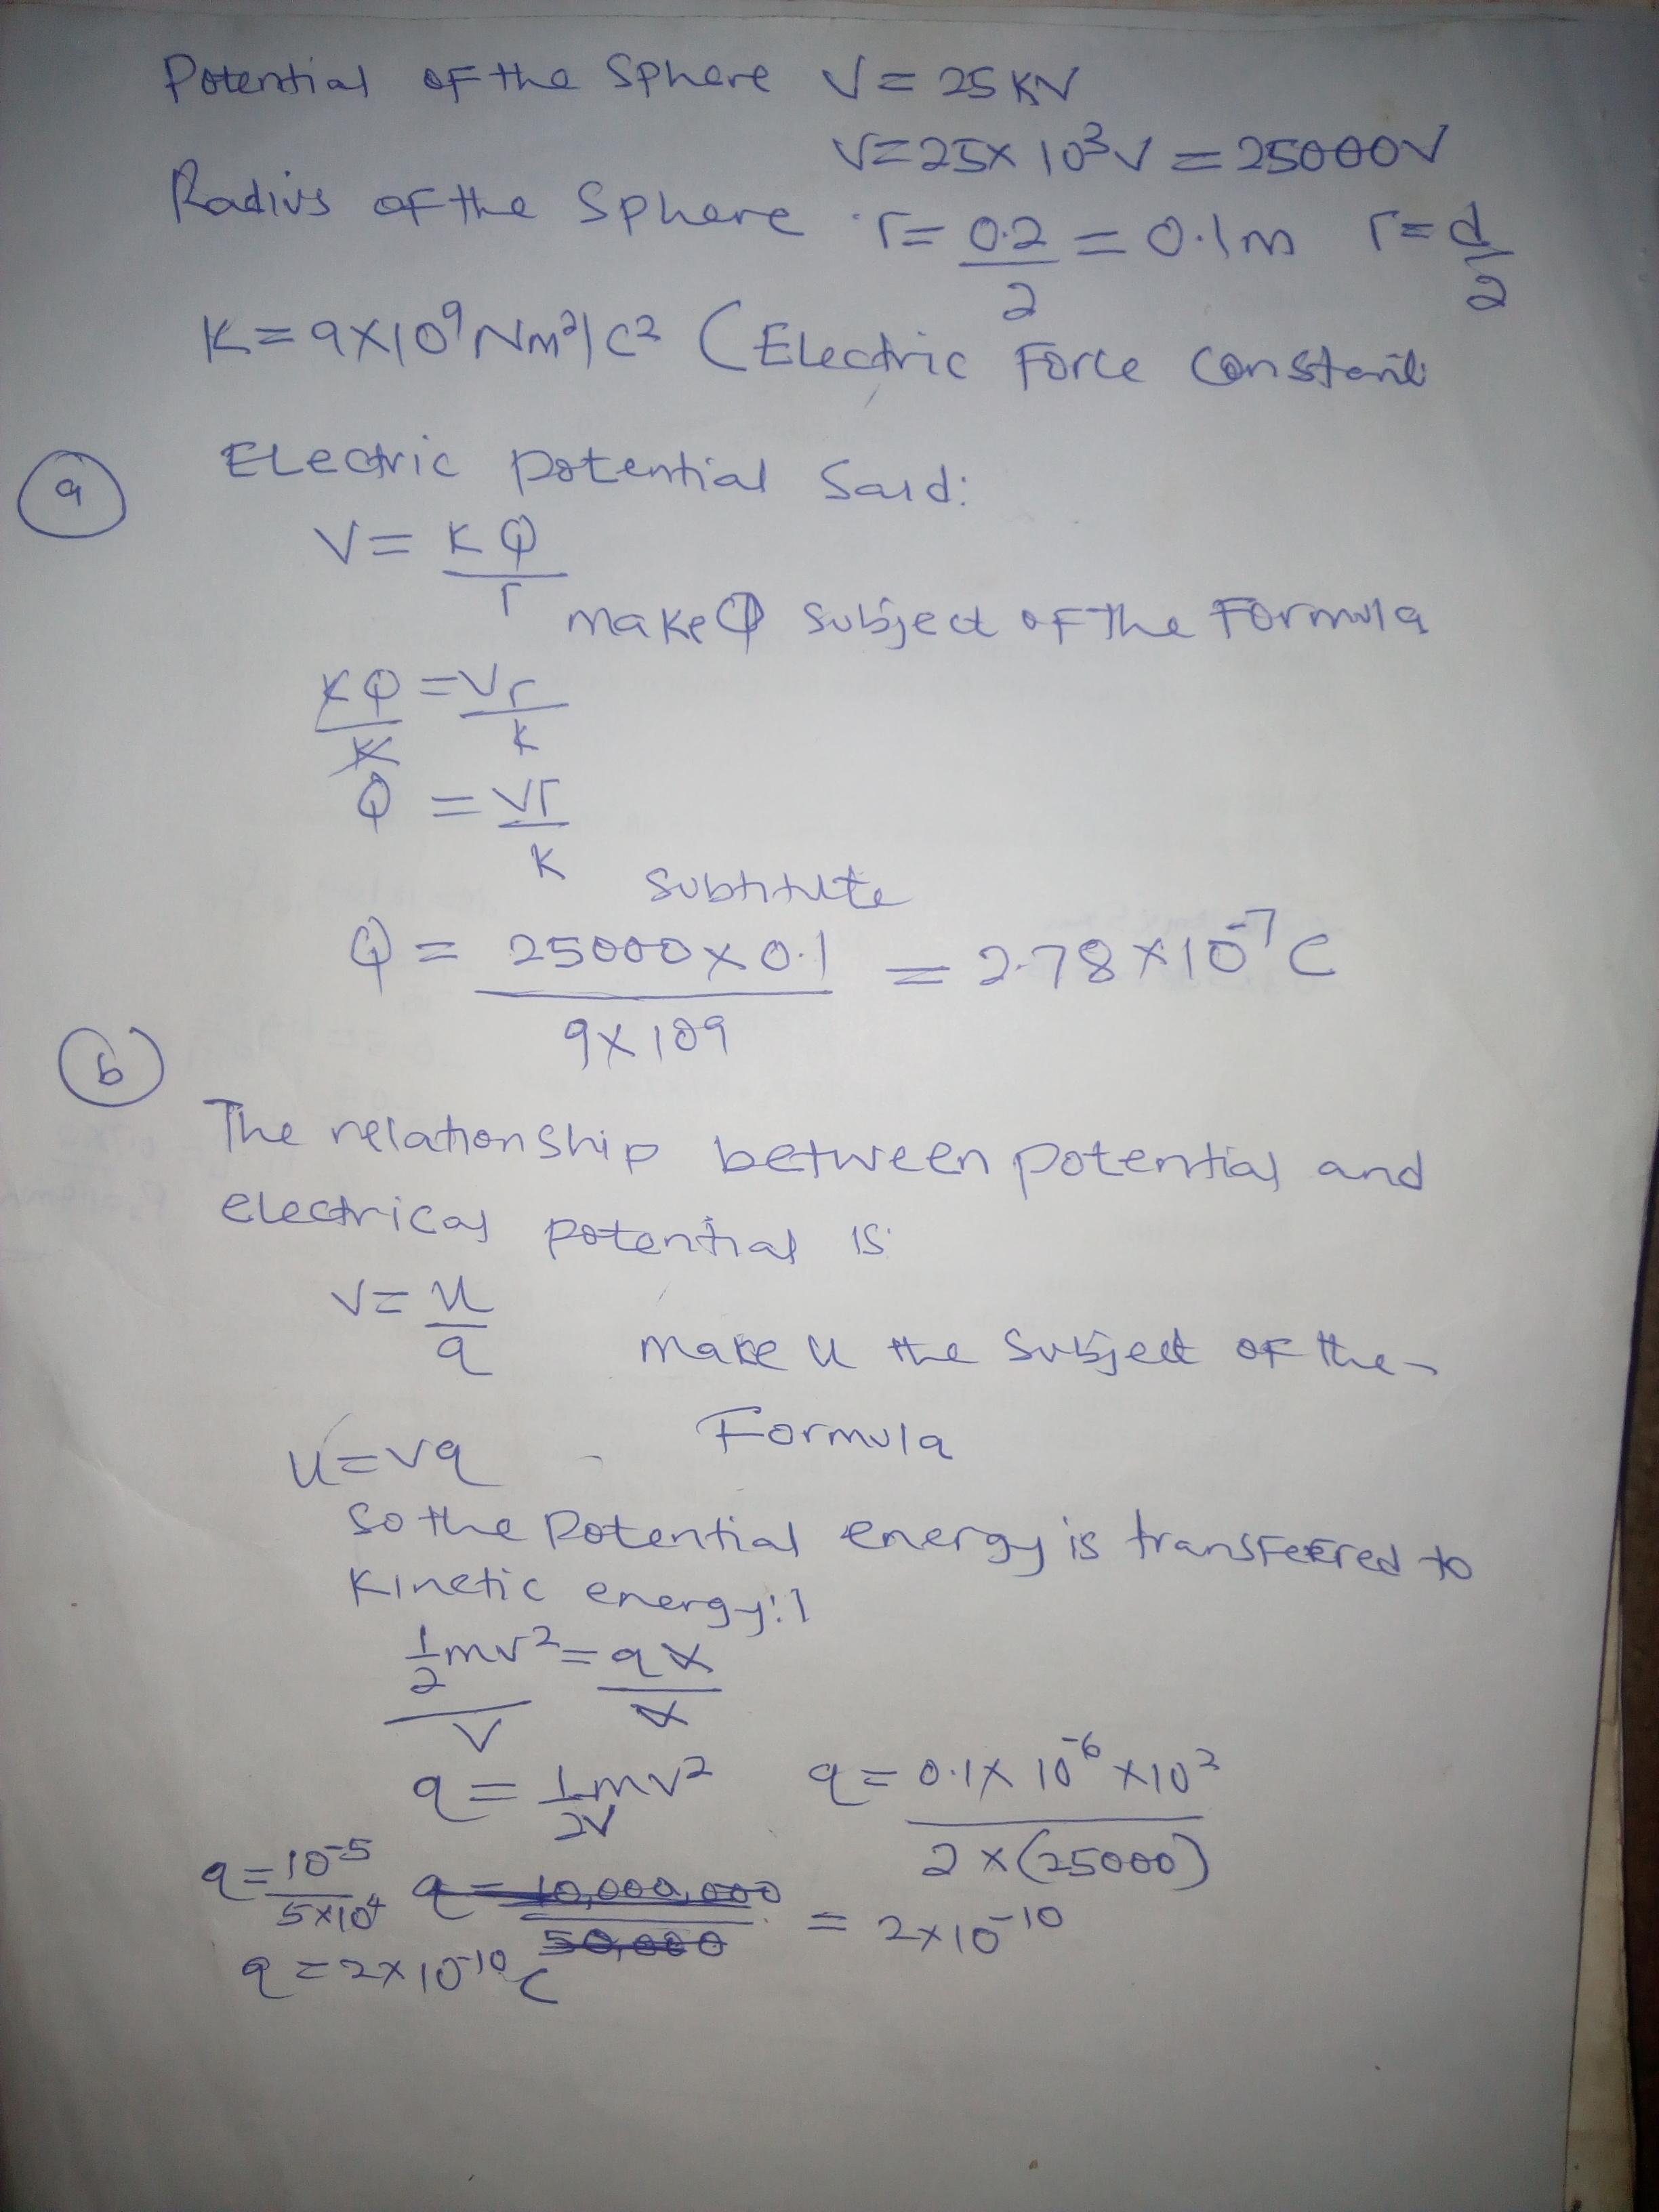 Potential of the Sphere V = 25 KV
V=25x 10³V = 25000V
Radius of the Sphere r= 0.2/2 = 0.1m r=d/2
K=9X10⁹Nm²/C² (Electric Force Constant
(a) Electric potential Said:
V= KQ/r
make Q subject of The Formula
KQ/K = Vr/K
Q = Vr/K
Subtitute
Q = 25000x0.1/9x109 = 2.78x10⁻⁷C
(b)
The relationship between potential and
electrical potential is
V= U/q make U the Subject of the
U=vq Formula
So the Potential energy is transferred to
Kinetic energy:
½mv²/V = qV/V
q = 1/2V mv² q = 0.1x 10⁻⁶ x10²/2x(25000)
q=10⁻⁵/5x10⁴ q = 10,000,000/50,000 = 2x10⁻¹⁰
q =2x10⁻¹⁰C